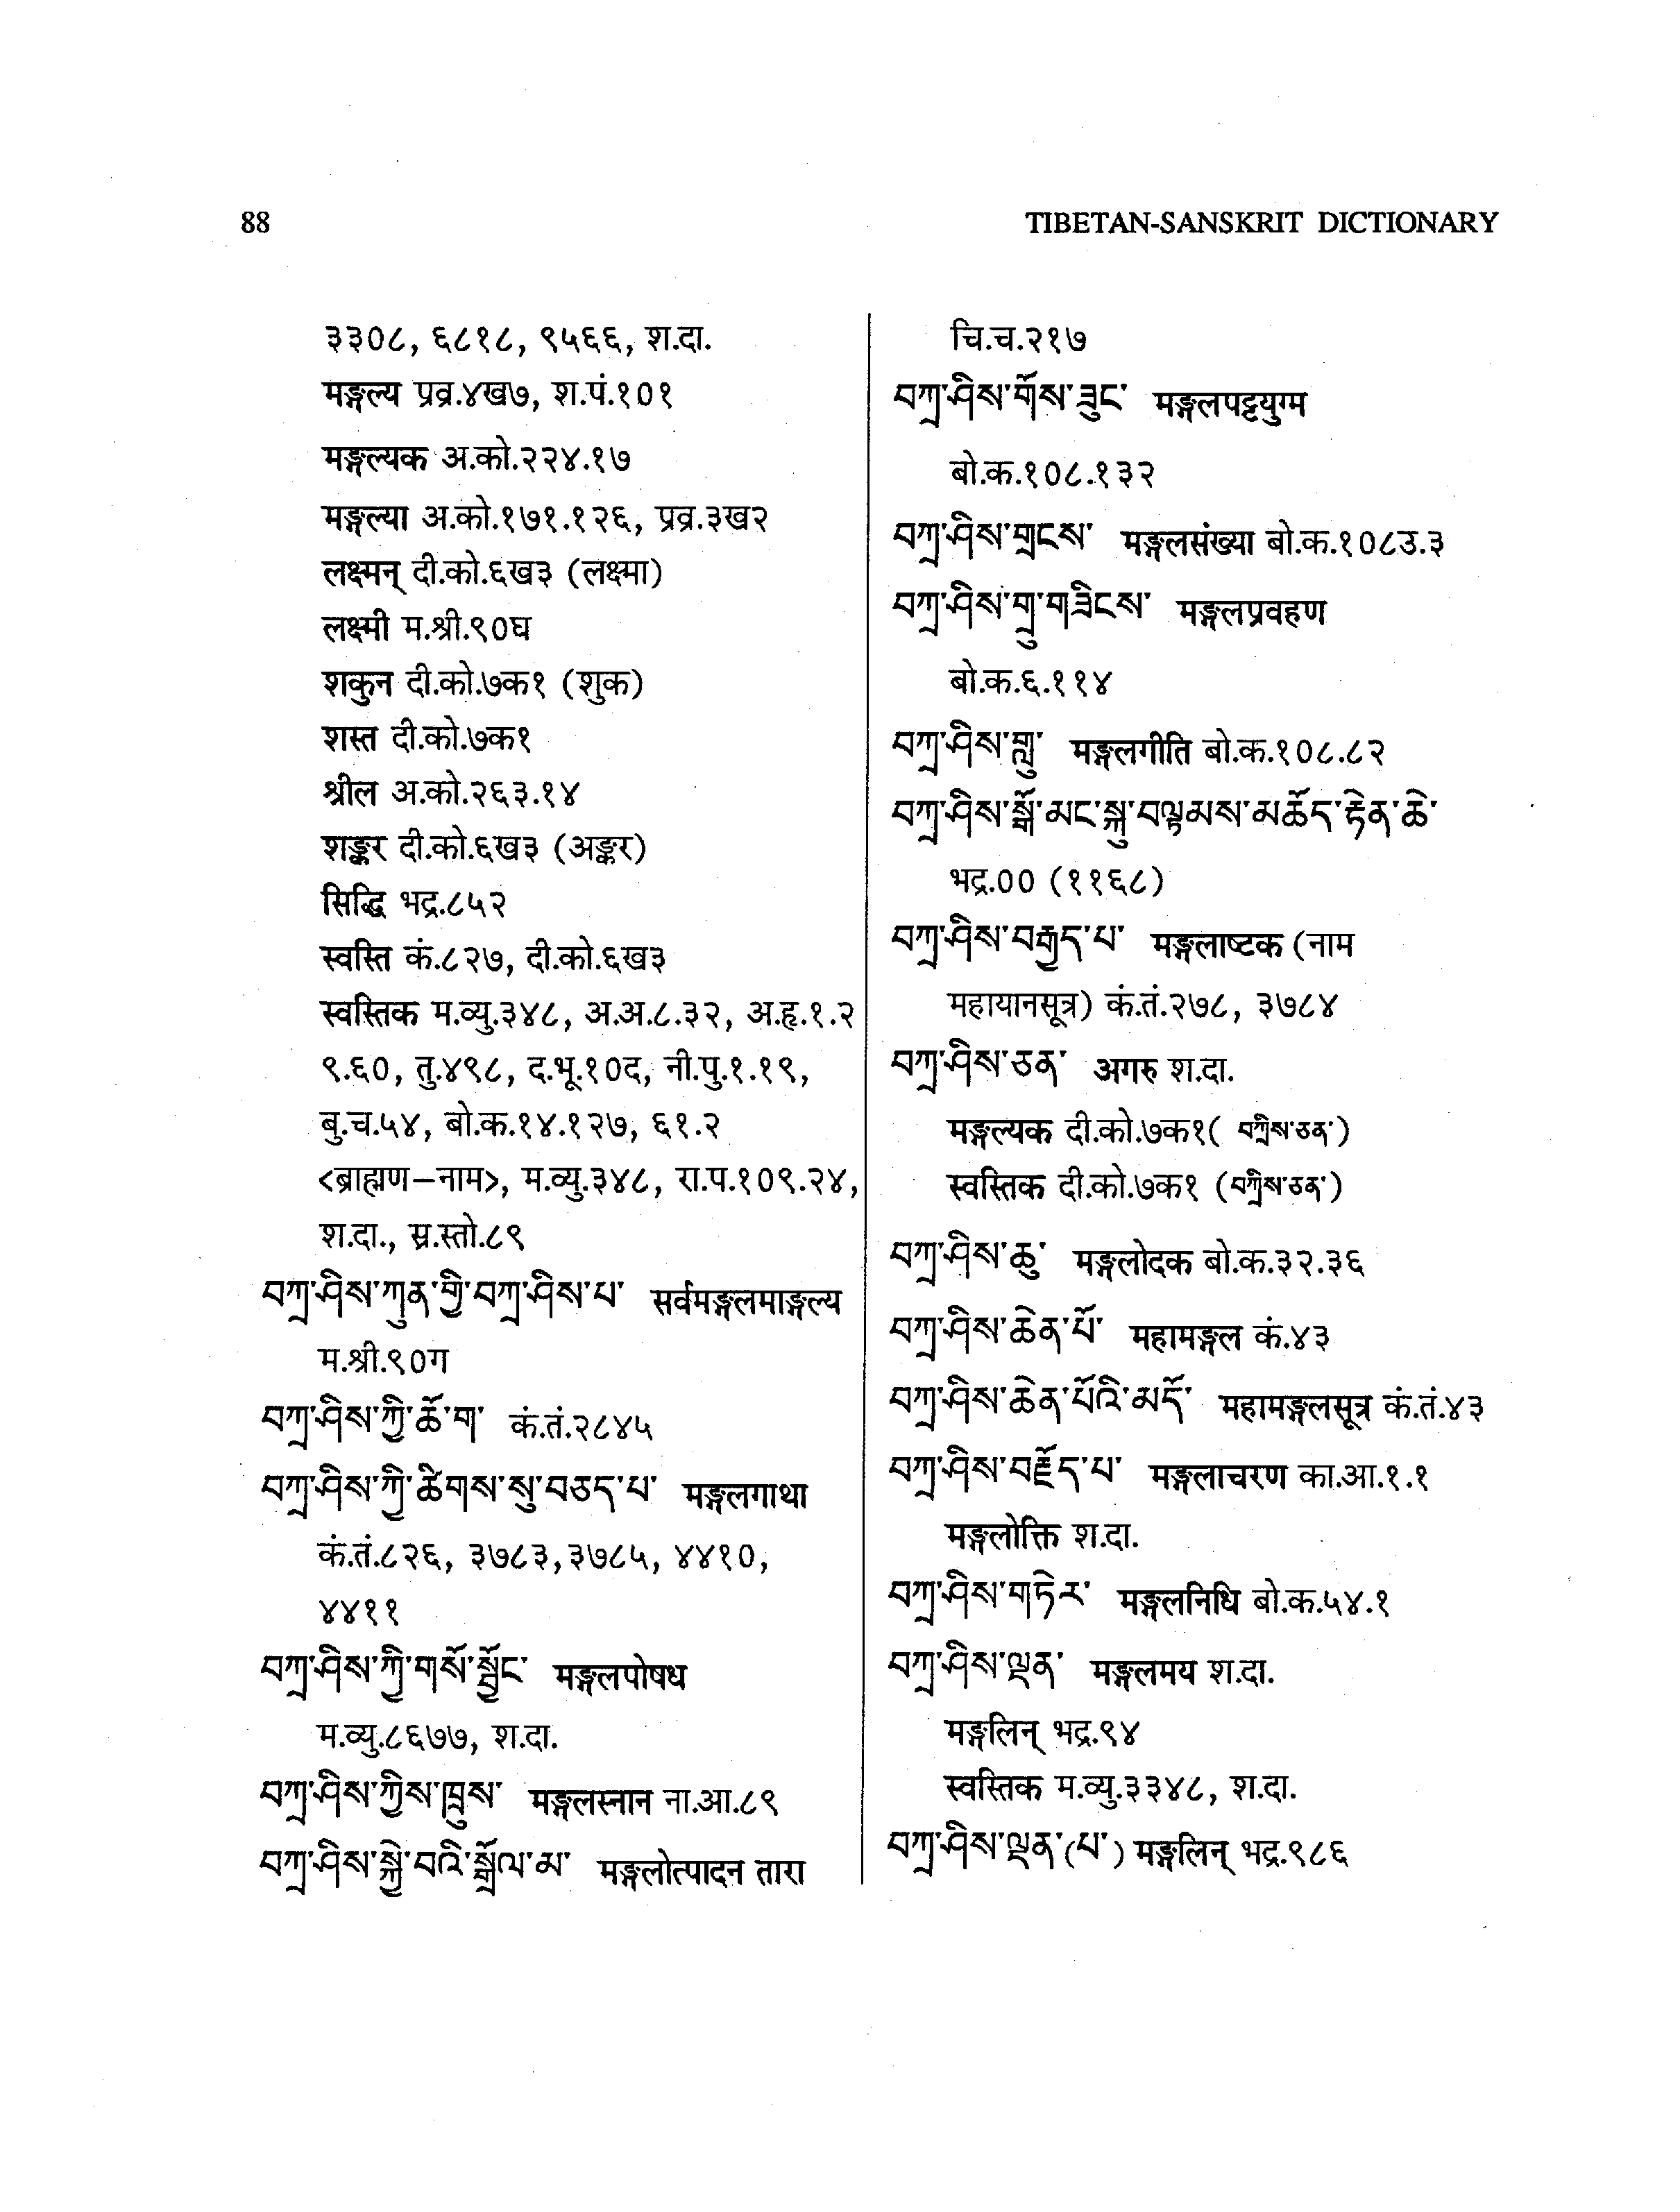 88
TIBETAN-SANSKRIT DICTIONARY
३३०८, ६८१८, ९५६६, श.दा.
मङ्गल्य प्रव्र.४ख७, श.पं.१०१
मङ्गल्यक अ.को.२२४.१७
मङ्गल्या अ.को.१७१.१२६, प्रव्र.३ख२
लक्ष्मन् दी.को.६ख३ (लक्ष्मा)
लक्ष्मी म.श्री.९०घ
शकुन दी.को.७क१ (शुक)
शस्त दी.को.७क१
श्रील अ.को.२६३.१४
शङ्कर दी.को.६ख३ (अङ्कर)
सिद्धि भद्र.८५२
स्वस्ति कं.८२७, दी.को.६ख३
स्वस्तिक म.व्यु.३४८, अ.अ.८.३२, अ.हृ.१.२
९.६०, तु.४९८, द.भू.१०द, नी.पु.१.१९,
बु.च.५४, बो.क.१४.१२७, ६१.२
<ब्राह्मण–नाम>, म.व्यु.३४८, रा.प.१०९.२४,
श.दा., स्र.स्तो.८९
བཀྲ་ཤིས་ཀུན་གྱི་བཀྲ་ཤིས་པ་ सर्वमङ्गलमाङ्गल्य
म.श्री.९०ग
བཀྲ་ཤིས་ཀྱི་ཆོ་ག་ कं.तं.२८४५
བཀྲ་ཤིས་ཀྱི་ཚིགས་སུ་བཅད་པ་ मङ्गलगाथा
कं.तं.८२६, ३७८३,३७८५, ४४१०,
४४११
བཀྲ་ཤིས་ཀྱི་གསོ་སྦྱོང་ मङ्गलपोषध
म.व्यु.८६७७, श.दा.
བཀྲ་ཤིས་ཀྱིས་ཁྲུས་ मङ्गलस्नान ना.आ.८९
བཀྲ་ཤིས་སྐྱེ་བའི་སྒྲོལ་མ་ मङ्गलोत्पादन तारा
चि.च.२१७
བཀྲ་ཤིས་གོས་ཟུང་ मङ्गलपट्टयुग्म
बो.क.१०८.१३२
བཀྲ་ཤིས་གྲངས་ मङ्गलसंख्या बो.क.१०८उ.३
བཀྲ་ཤིས་གྲུ་གཟིངས་ मङ्गलप्रवहण
बो.क.६.११४
བཀྲ་ཤིས་གླུ་ मङ्गलगीति बो.क.१०८.८२
བཀྲ་ཤིས་སྒོ་མང་སྐུ་བལྟམས་མཆོད་རྟེན་ཆེ་
भद्र.०० (११६८)
བཀྲ་ཤིས་བརྒྱད་པ་ मङ्गलाष्टक (नाम
महायानसूत्र) कं.तं.२७८, ३७८४
བཀྲ་ཤིས་ཅན་ अगरु श.दा.
मङ्गल्यक दी.को.७क१( བཀྲིས་ཅན་)
स्वस्तिक दी.को.७क१ (བཀྲིས་ཅན་)
བཀྲ་ཤིས་ཆུ་ मङ्गलोदक बो.क.३२.३६
བཀྲ་ཤིས་ཆེན་པོ་ महामङ्गल कं.४३
བཀྲ་ཤིས་ཆེན་པོའི་མདོ་ महामङ्गलसूत्र कं.तं.४३
བཀྲ་ཤིས་བརྗོད་པ་ मङ्गलाचरण का.आ.१.१
मङ्गलोक्ति श.दा.
བཀྲ་ཤིས་གཏེར་ मङ्गलनिधि बो.क.५४.१
བཀྲ་ཤིས་ལྡན་ मङ्गलमय श.दा.
मङ्गलिन् भद्र.९४
स्वस्तिक म.व्यु.३३४८, श.दा.
བཀྲ་ཤིས་ལྡན་(པ་) मङ्गलिन् भद्र.९८६